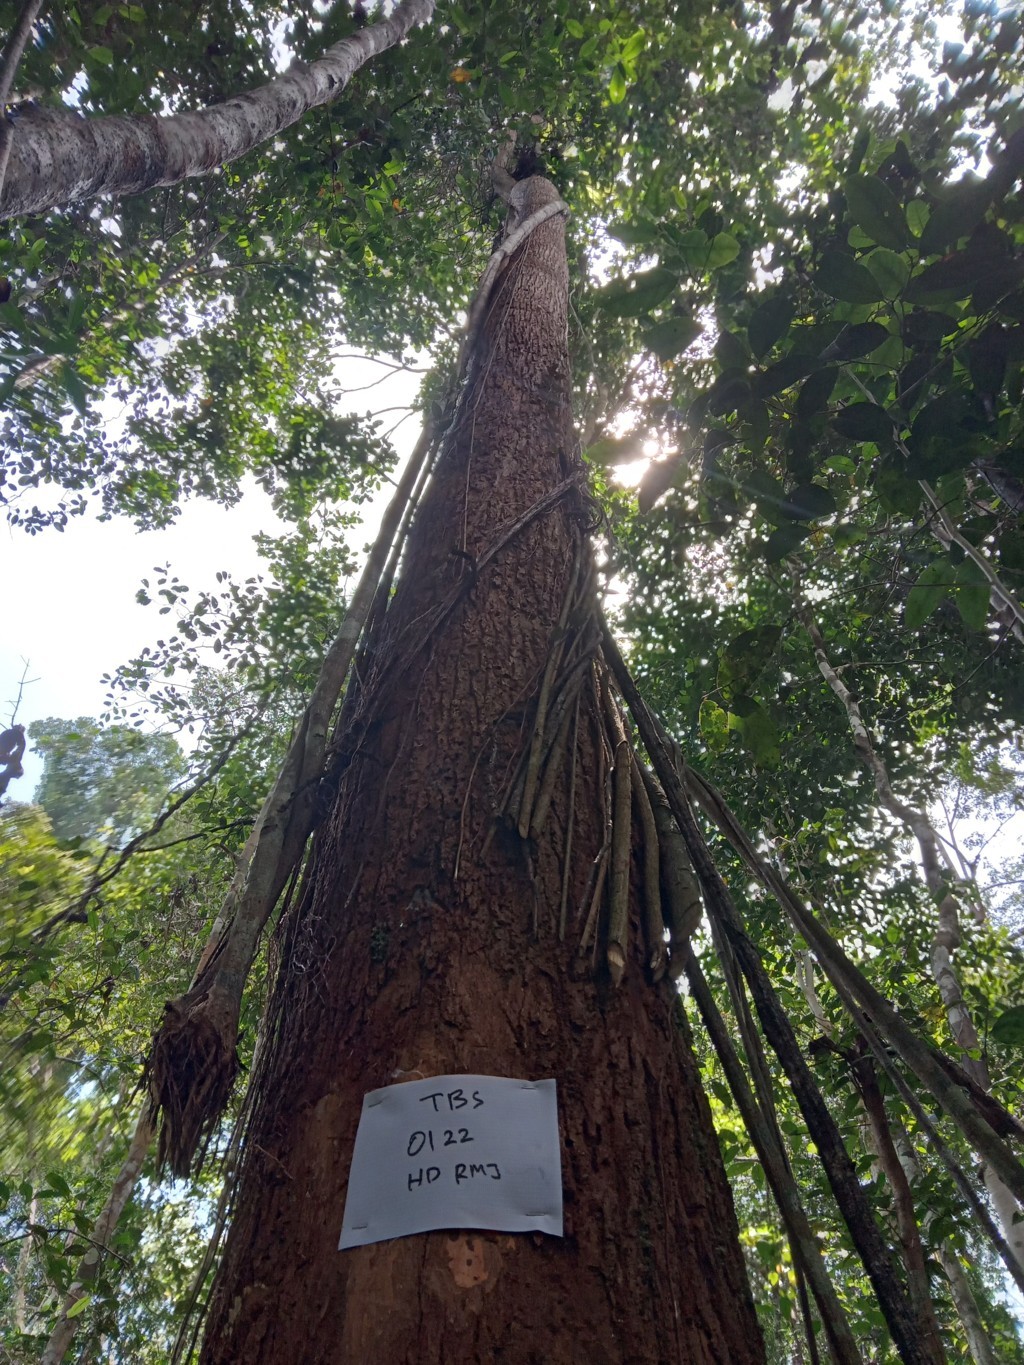 TBS
0122
HD RMJ